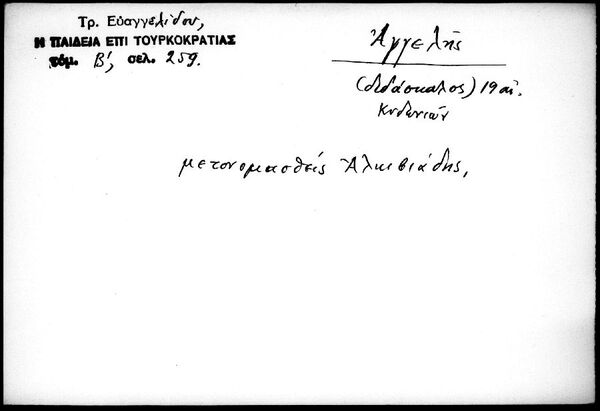 Τρ. Εὐαγγελίδου,
Η ΠΑΙΔΕΙΑ ΕΠΙ ΤΟΥΡΚΟΚΡΑΤΙΑΣ
τόμ. Β', σελ. 259.
Ἀγγελῆς
(διδάσκαλος) 19 αἰ.
Κυδωνιῶν
μετονομασθείς Ἀλκιβιάδης,